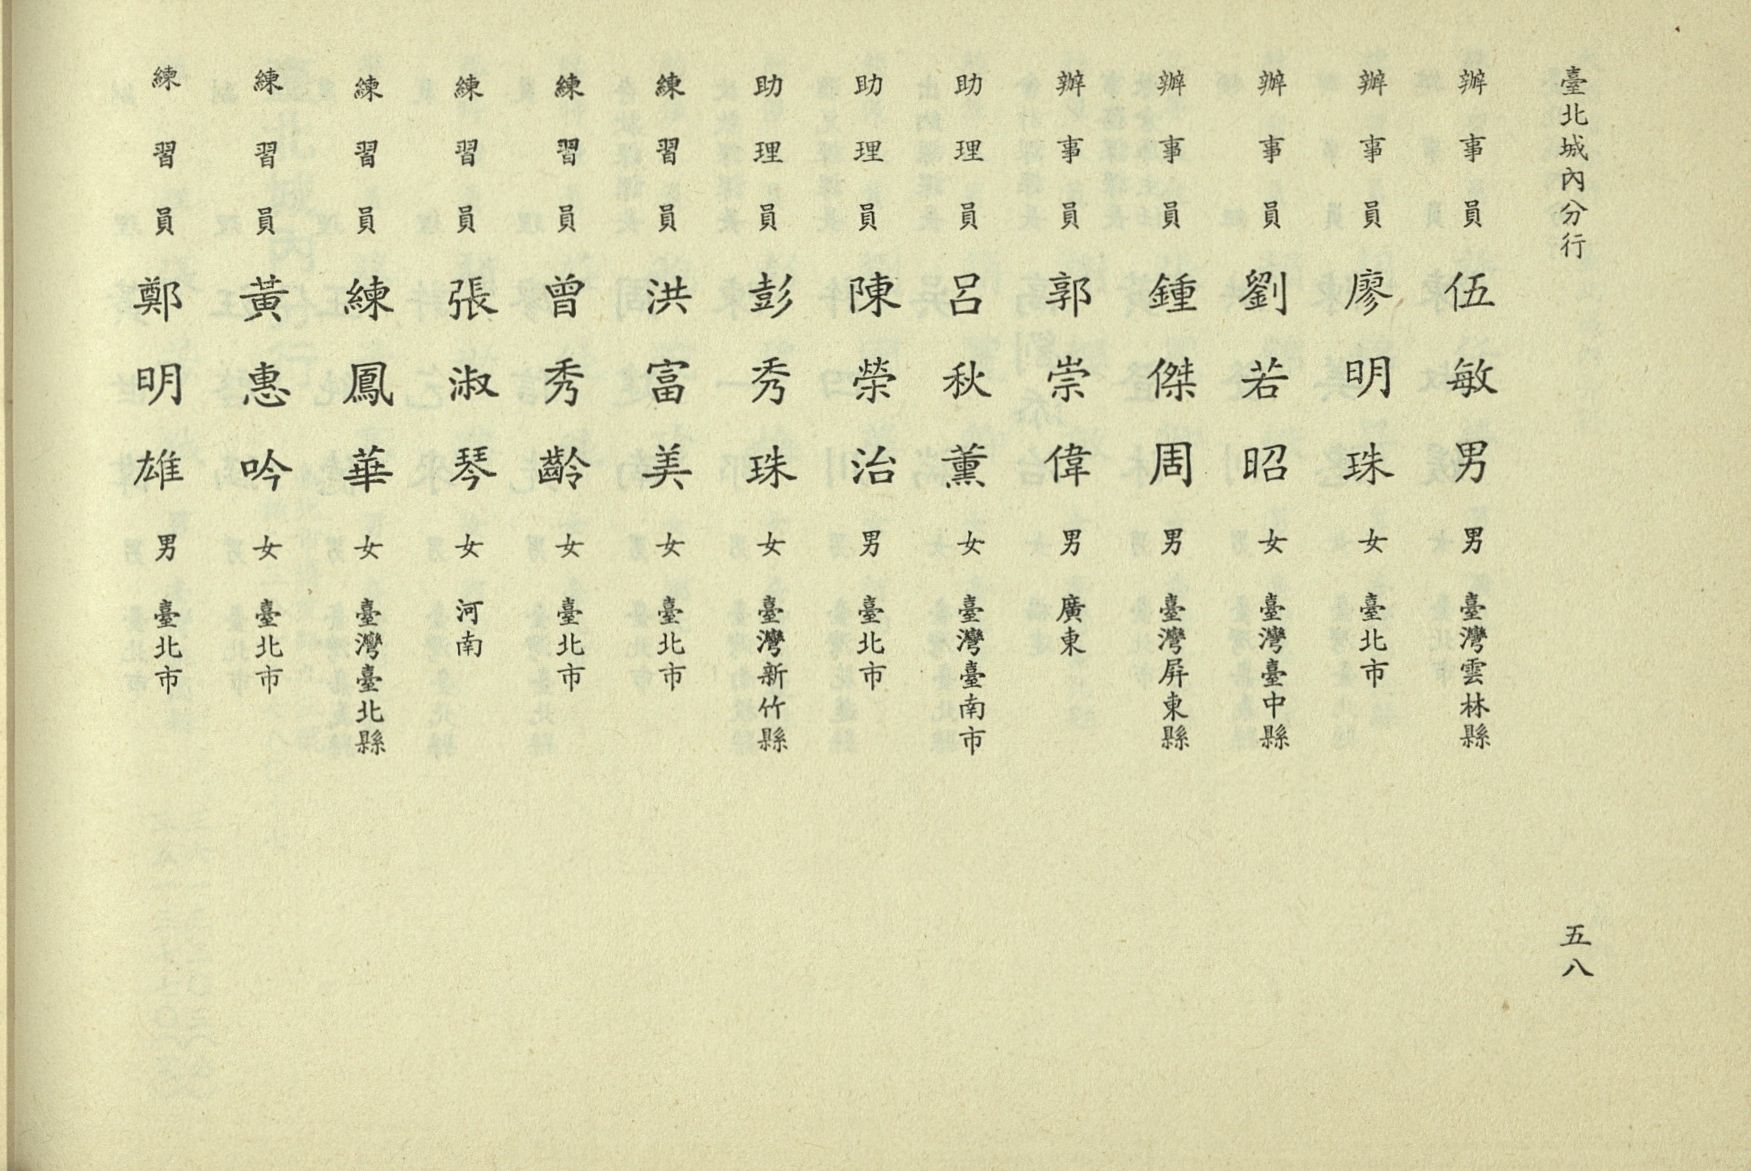 臺北城內分行
五八
辦事員 伍敏男 男 臺灣雲林縣
辦事員 廖明珠 女 臺北市
辦事員 劉若昭 女 臺灣臺中縣
辦事員 鍾傑周 男 臺灣屏東縣
辦事員 郭崇偉 男 廣東
助理員 呂秋薰 女 臺灣臺南市
助理員 陳榮治 男 臺北市
助理員 彭秀珠 女 臺灣新竹縣
練習員 洪富美 女 臺北市
練習員 曾秀齡 女 臺北市
練習員 張淑琴 女 河南
練習員 練鳳華 女 臺灣臺北縣
練習員 黃惠吟 女 臺北市
練習員 鄭明雄 男 臺北市